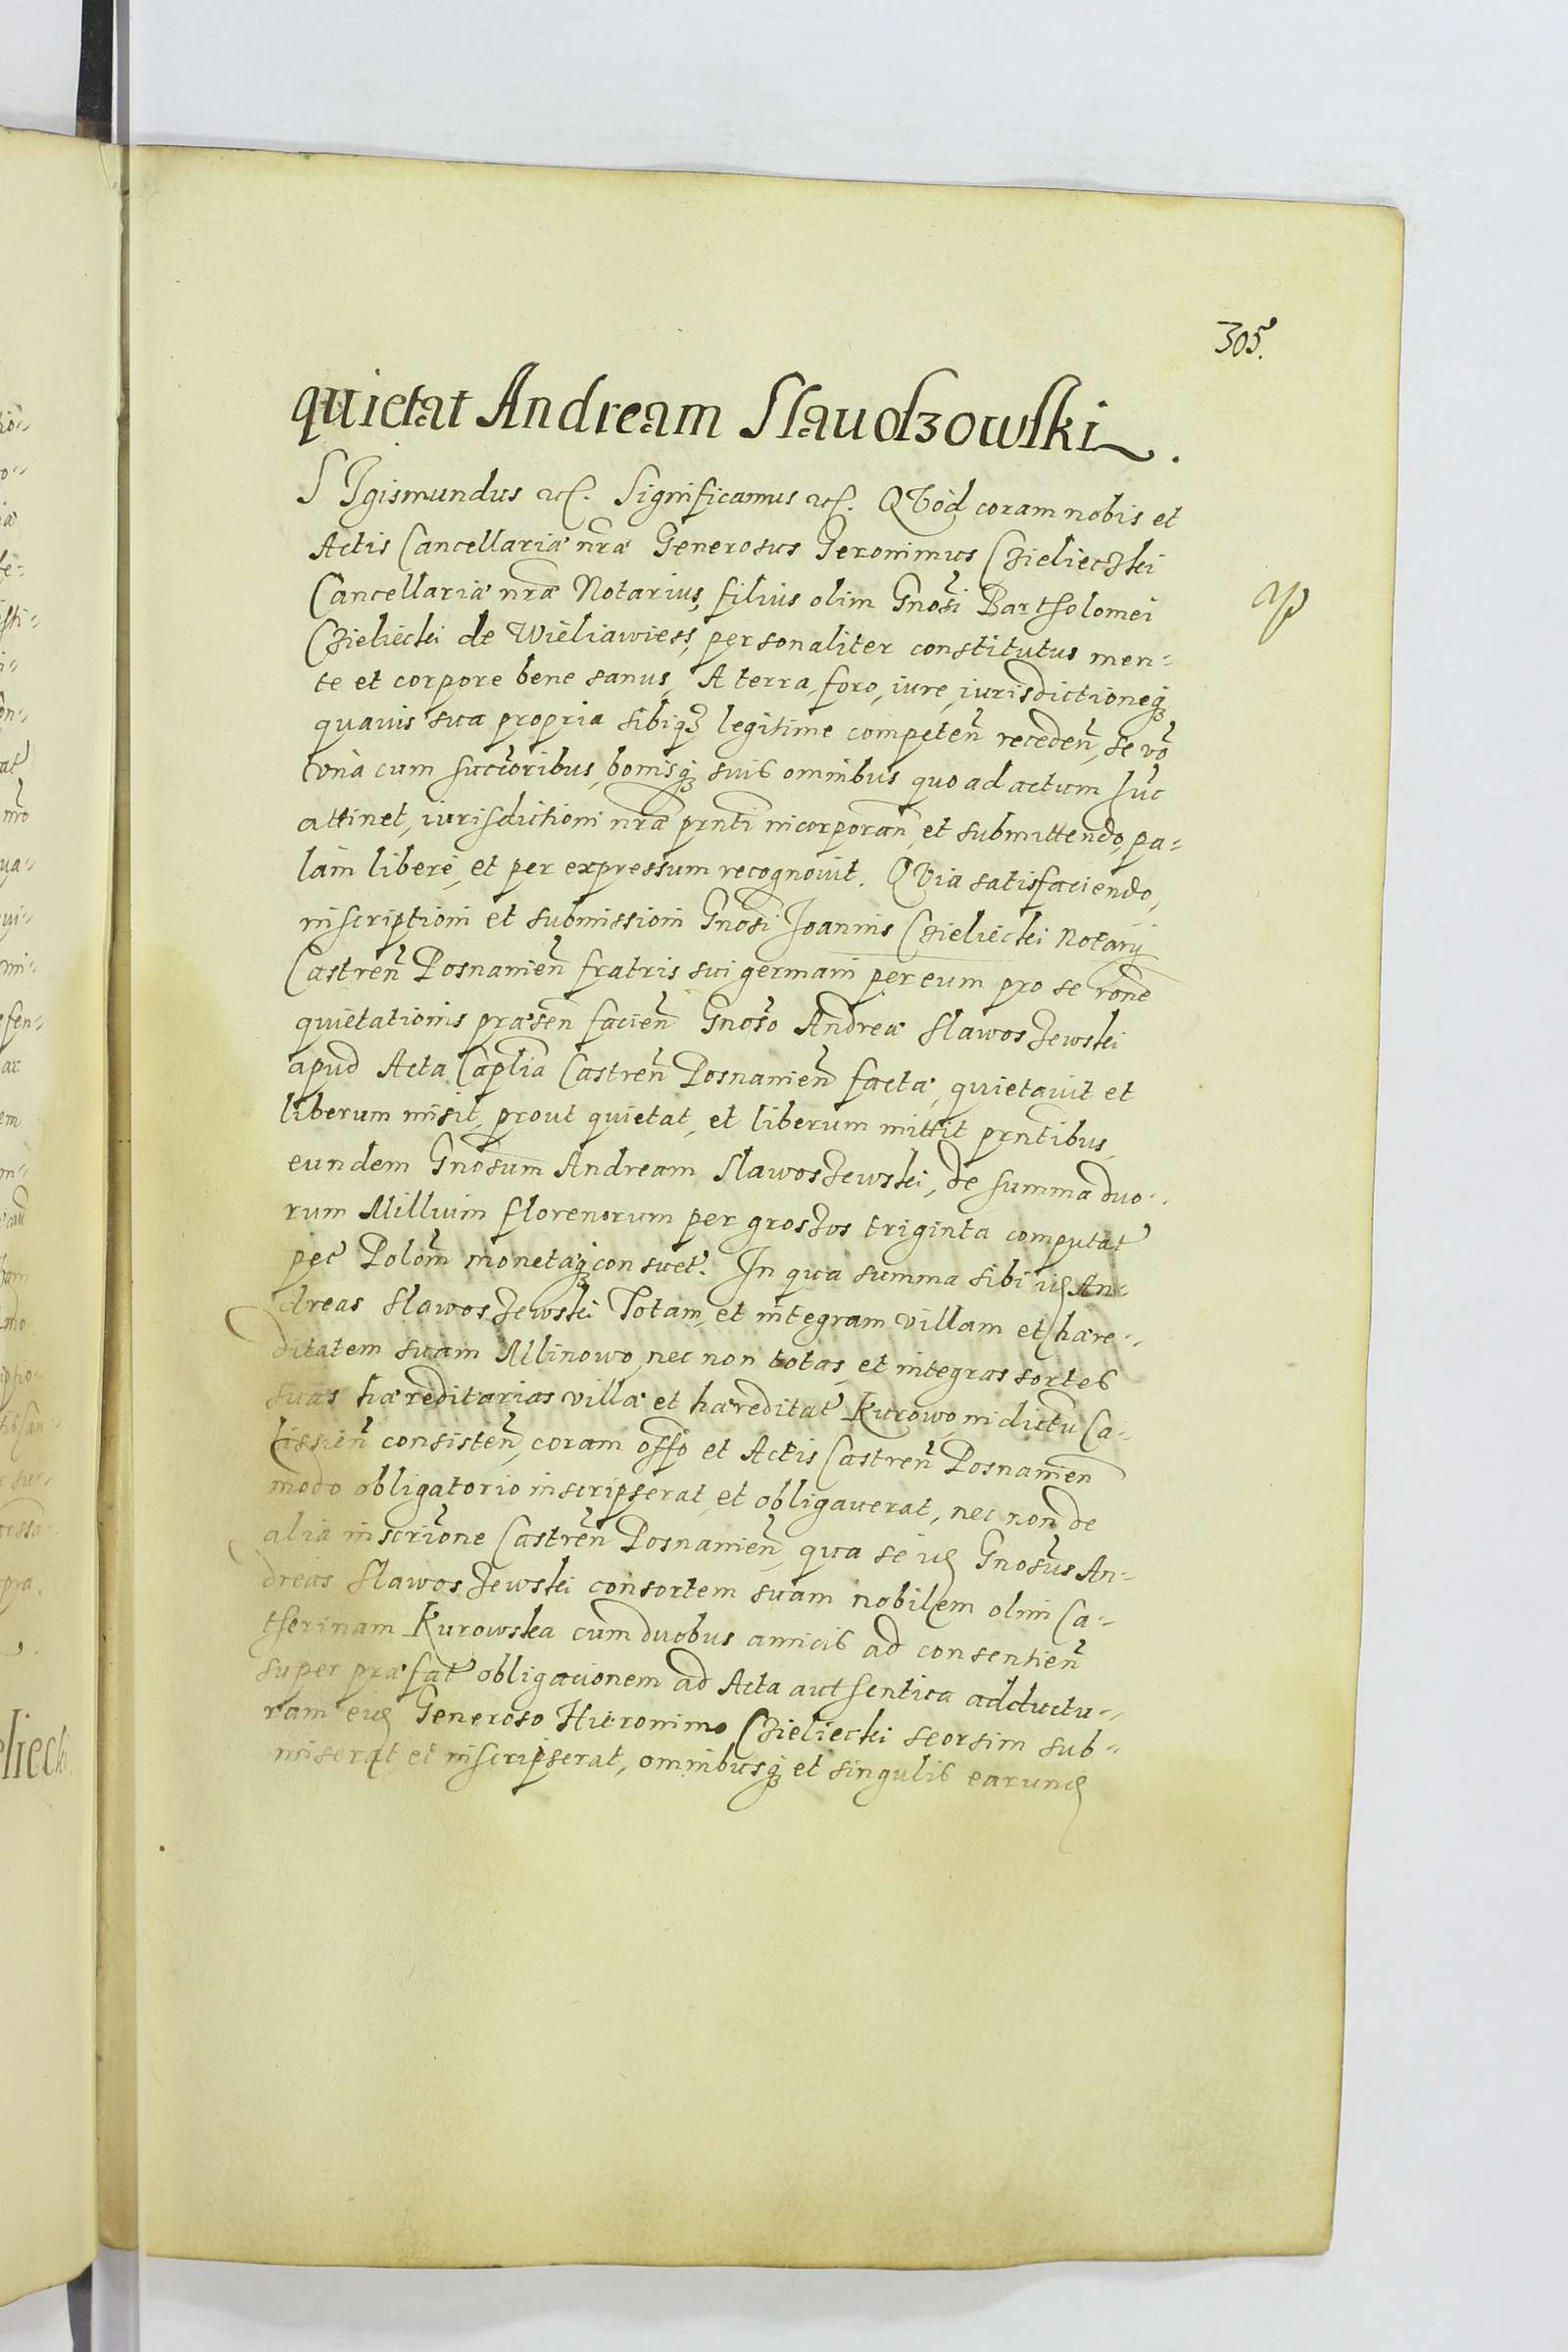 305.
quietat Andream Slavoszowski.
SIgismundus etc. Significamus etc. QVod coram nobis et
Actis Cancellariæ nrae Generosus Ieronimus Czielieczki
Cancellariæ nræ Notarius, filius olim Gnosi Bartholomei
Czieliecki de Wieliawiess, personaliter constitutus men=
te et corpore bene sanus, A terra, foro, iure, iurisdictioneq3
quavis sua propria sibiq3 legitime competeñ recedeñ, se vo
una cum succoribus, bonisq3 suis omnibus quo ad actum huc
attinet, iurisdictioni nræ prnti incorporañ, et submittendo, pa=
lam libere, et per expressum recognovit. QVia satisfaciendo,
inscriptioni et submissioni Gnosi Joannis Czieliecki Notarij
Castreñ Posnanieñ fratris sui germani per eum pro se rone
quietationis præseñ facieñ Gnoso Andreæ Slawoszewski
apud Acta Caplia Castreñ Posnanieñ factæ, quietavit et
liberum misit, prout quietat, et liberum mittit prntibus,
eundem Gnosum Andream Slawoszewski, de summa duo=
rum Millium florenorum per groszos triginta computat
pec Poloñ monetæq3 consuet. In qua summa sibi id An=
dreas Slawoszewski Totam, et integram villam et hære=
ditatem suam Mlinowo, nec non totas, et integras sortes
suas hæreditarias villæ et hæreditat Kurowo, in dictu Ca=
lissieñ consisteñ, coram offo et Actis Castreñ Posnanieñ
modo obligatorio inscripserat, et obligaverat, nec non de
alia inscrione Castreñ Posnanieñ, qua se id Gnosus An=
dreas Slawoszewski consortem suam nobilem olim Ca=
therinam Kurowska cum duobus amicis ad consentieñ
super præfat obligacionem ad Acta authentica adductu=
ram eid Generoso Hieronimo Czieliecki seorsim sub=
miserat et inscripserat, omnibusq3 et singulis earund